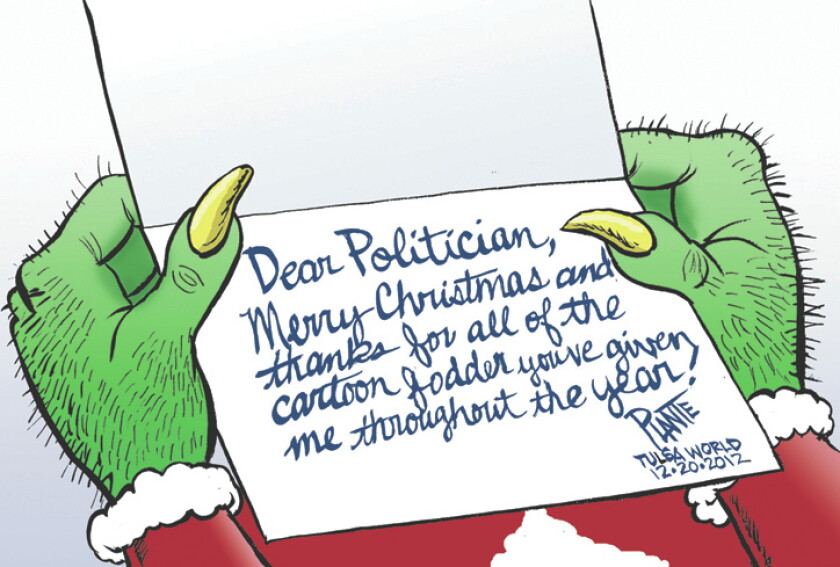 Dear Politician,
Merry Christmas and
thanks for all of the
cartoon fodder you've given
me throughout the year!
PLANTE
TULSA WORLD
12.20.2012